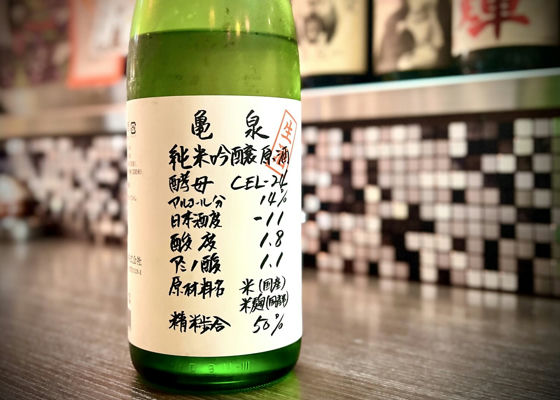 亀 泉
生酒
純米吟醸原酒
酵母 CEL-24
アルコール分 14%
日本酒度 -11
酸度 1.8
アミノ酸 1.1
原材料名 米(国産)
米麹(国産米)
精米歩合 50%
輝